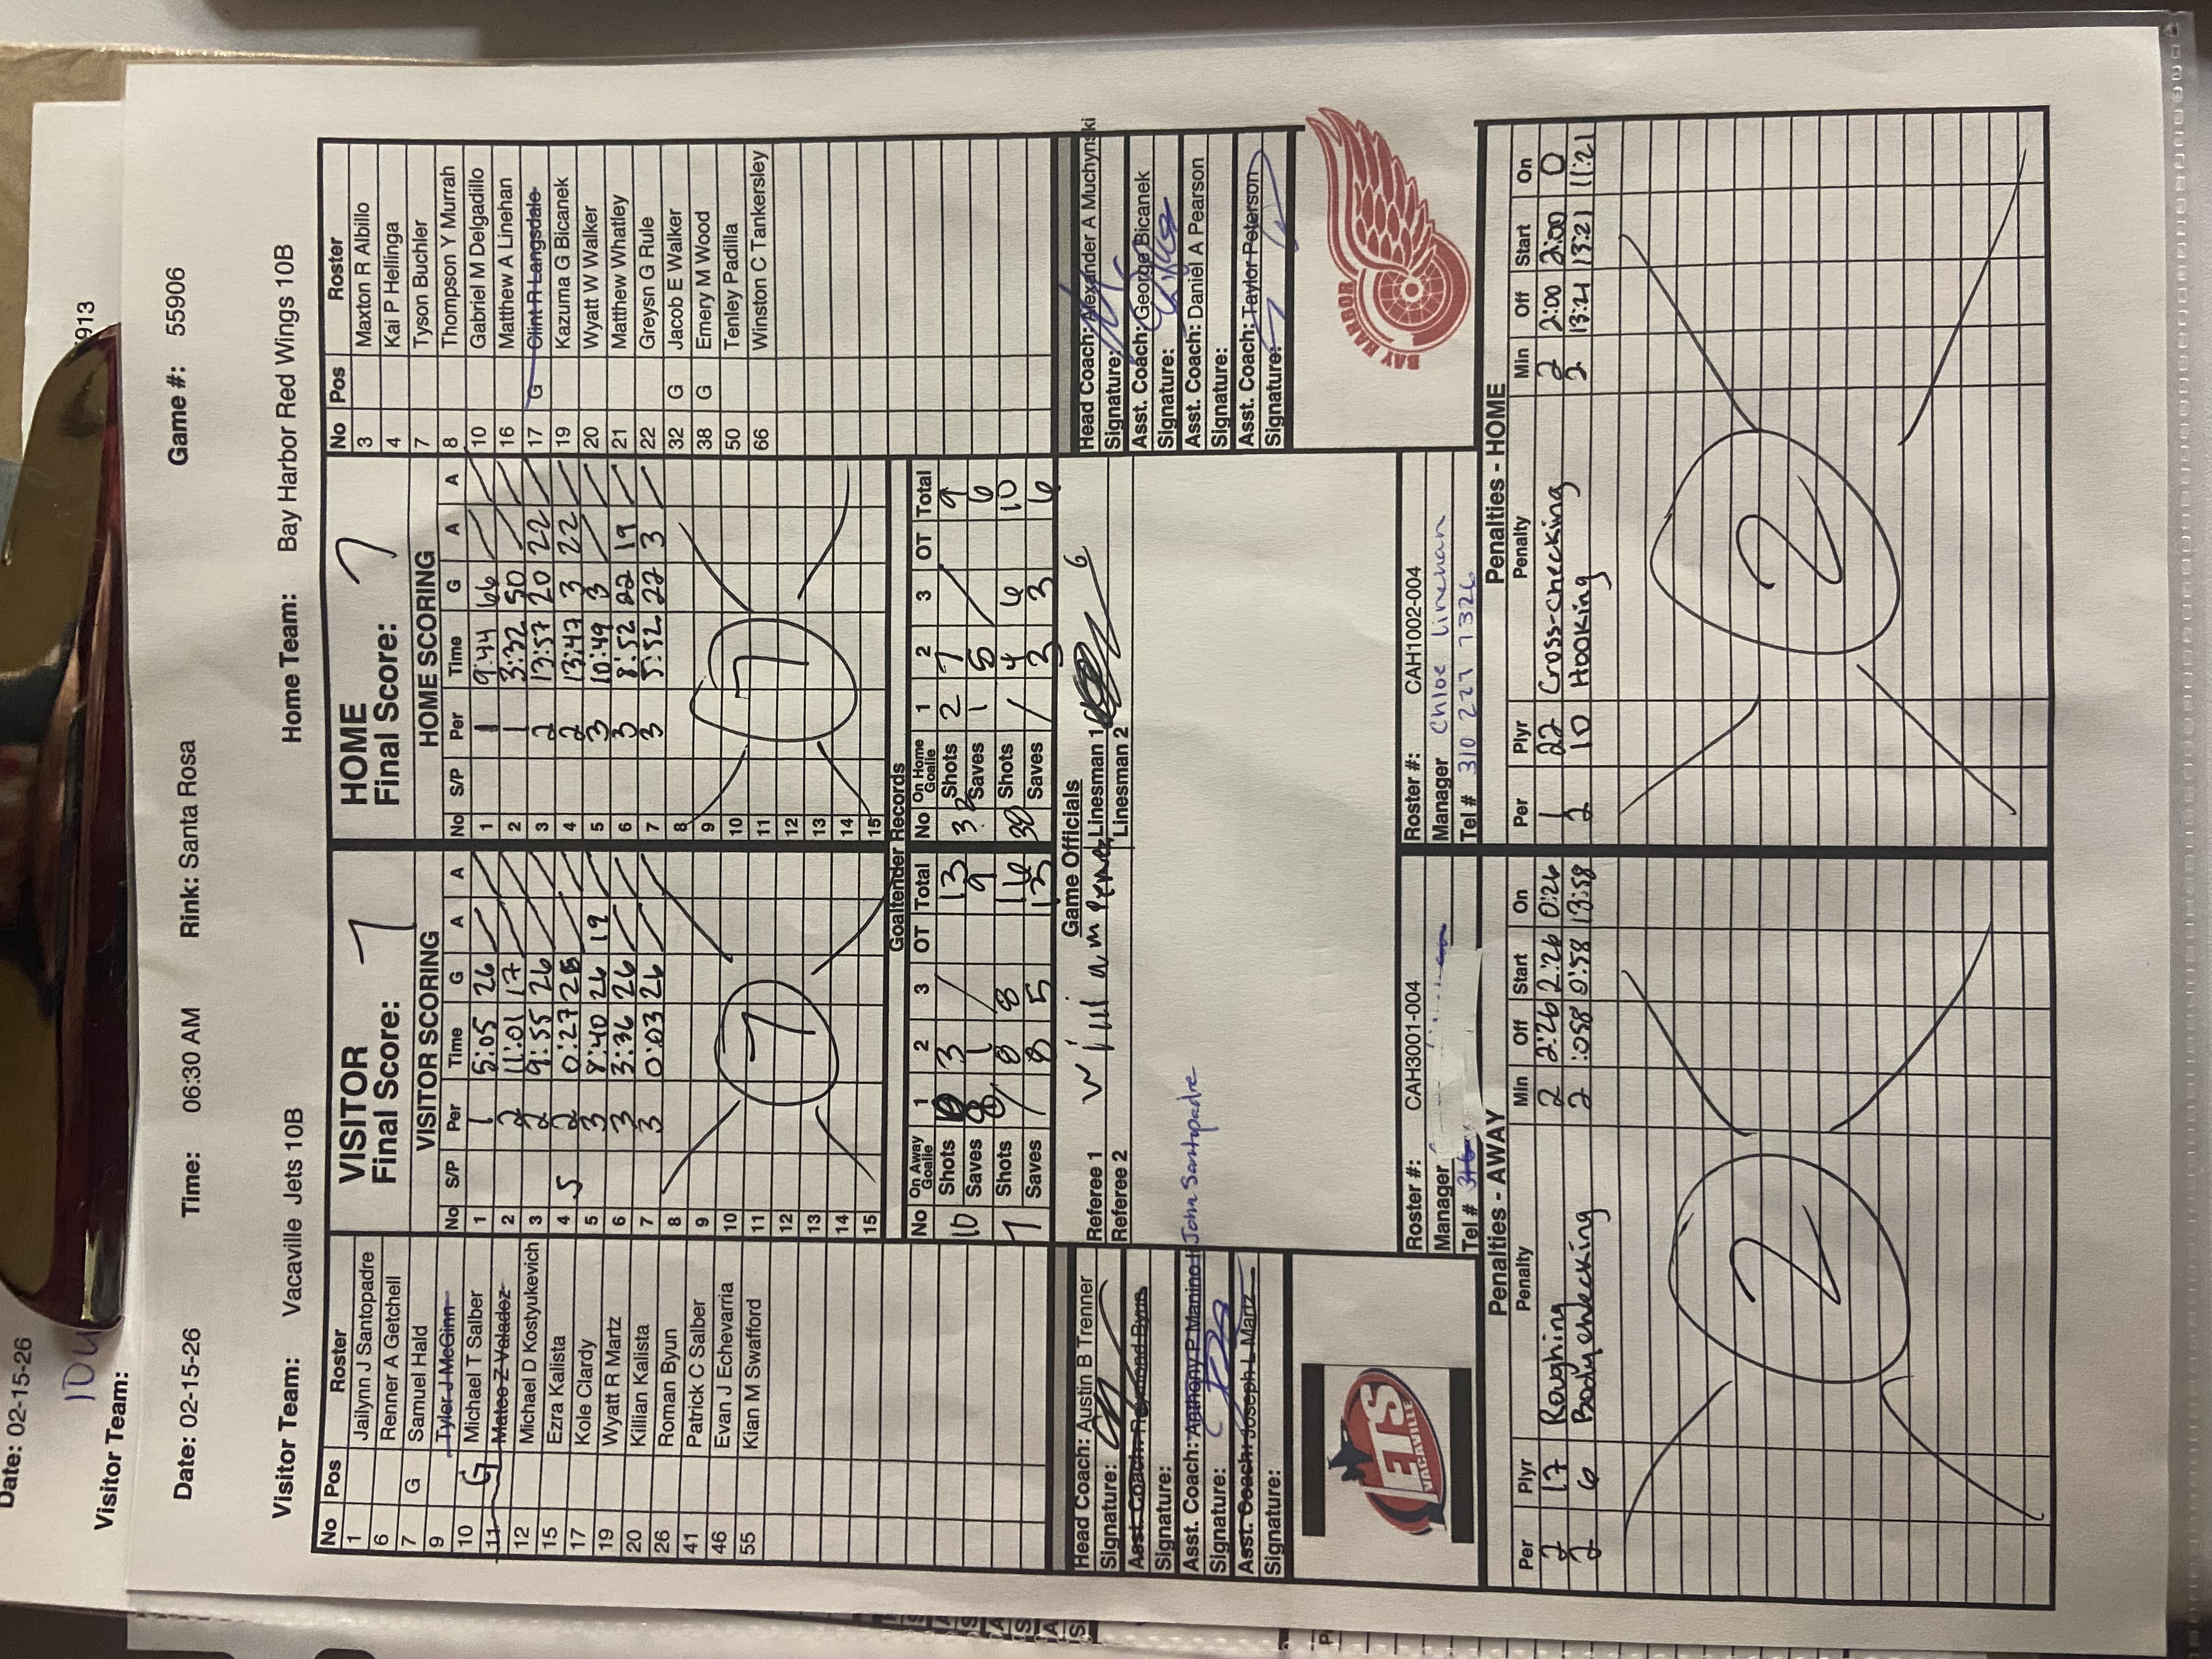 Date: 02-15-26
10U
913
Visitor Team:
Date: 02-15-26 Time: 06:30 AM Rink: Santa Rosa Game #: 55906
Visitor Team: Vacaville Jets 10B Home Team: Bay Harbor Red Wings 10B
No Pos Roster
1 Jailynn J Santopadre
6 Renner A Getchell
7 G Samuel Hald
9 Tyler J McGinn
10 G Michael T Salber
11 Mateo Z Valadez
12 Michael D Kostyukevich
15 Ezra Kalista
17 Kole Clardy
19 Wyatt R Martz
20 Killian Kalista
26 Roman Byun
41 Patrick C Salber
46 Evan J Echevarria
55 Kian M Swafford
VISITOR
Final Score: 7
VISITOR SCORING
No S/P Per Time G A A
1 1 5:05 26
2 2 11:01 17
3 2 9:55 26
4 S 2 0:27 26
5 3 8:40 26 19
6 3 3:36 26
7 3 0:03 26
8
9
10
11
12
13
14
15
7
HOME
Final Score: 7
HOME SCORING
No S/P Per Time G A A
1 1 9:44 66
2 1 3:32 50
3 2 13:57 20 22
4 2 13:47 3 22
5 3 10:49 3
6 3 8:52 22 19
7 3 5:52 22 3
8
9
10
11
12
13
14
15
7
No Pos Roster
3 Maxton R Albillo
4 Kai P Hellinga
7 Tyson Buchler
8 Thompson Y Murrah
10 Gabriel M Delgadillo
16 Matthew A Linehan
17 G Clint R Langsdale
19 Kazuma G Bicanek
20 Wyatt W Walker
21 Matthew Whatley
22 Greysn G Rule
32 G Jacob E Walker
38 G Emery M Wood
50 Tenley Padilla
66 Winston C Tankersley
Goaltender Records
No On Away Goalie 1 2 3 OT Total
10 Shots 3 13
Saves 8 1 9
7 Shots 8 8 16
Saves 8 5 13
No On Home Goalie 1 2 3 OT Total
32 Shots 2 7 9
Saves 1 5 6
38 Shots 4 6 10
Saves 3 3 6
Head Coach: Austin B Trenner
Signature:
Asst. Coach: Raymond Byun
Signature:
Asst. Coach: Anthony P Manino I John Santopadre
Signature:
Asst. Coach: Joseph L Martz
Signature:
Game Officials
Referee 1 William Linesman 1
Referee 2 Linesman 2
Head Coach: Alexander A Muchynski
Signature:
Asst. Coach: George Bicanek
Signature:
Asst. Coach: Daniel A Pearson
Signature:
Asst. Coach: Taylor Peterson
Signature:
JETS
VACAVILLE
Roster #: CAH3001-004
Manager
Tel #
Roster #: CAH1002-004
Manager Chloe Linehan
Tel # 310 227 7326
BAY HARBOR
Penalties - AWAY
Per Plyr Penalty Min Off Start On
2 17 Roughing 2 2:26 2:26 0:26
2 6 Bodychecking 2 :058 0:58 13:58
2
Penalties - HOME
Per Plyr Penalty Min Off Start On
1 22 Cross-checking 2 2:00 2:00 0
2 10 Hooking 2 13:21 13:21 11:21
2